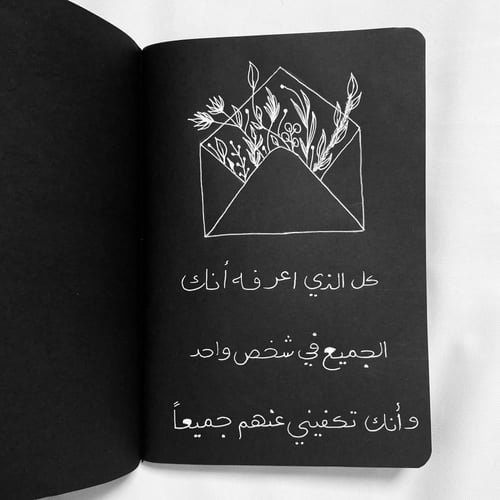 كل الذي اعرفه أنك
الجميع في شخص واحد
وأنك تكفيني عنهم جميعاً